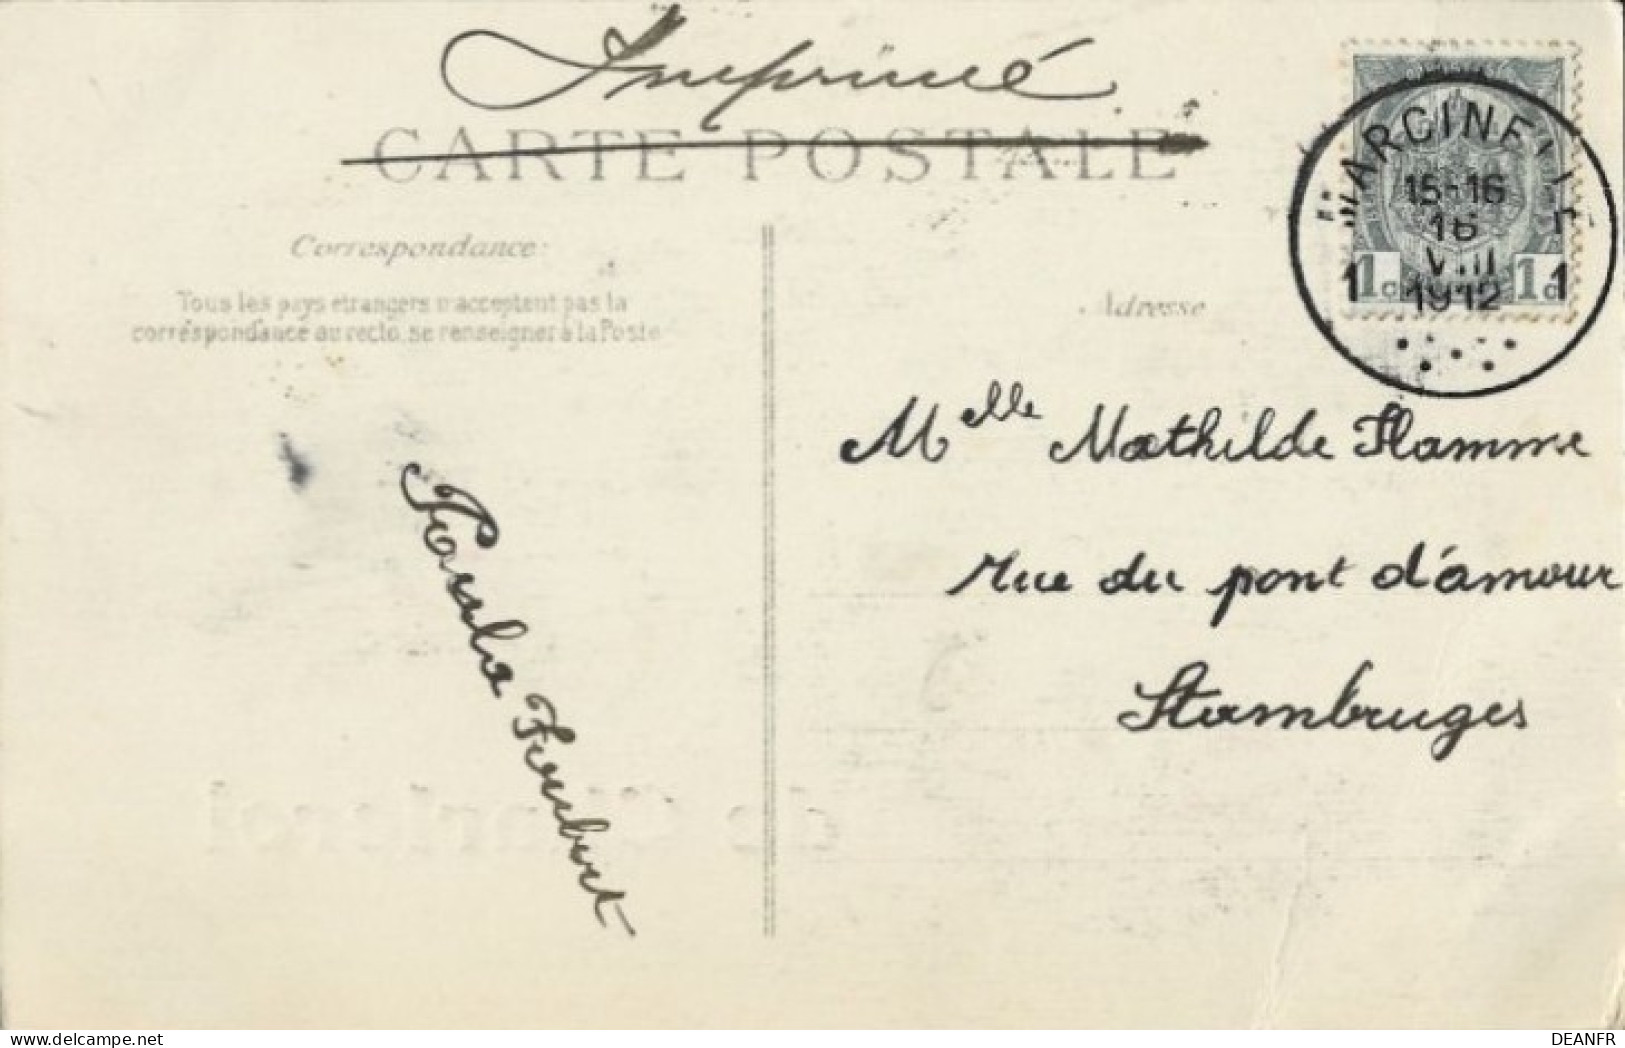 Imprimé
CARTE POSTALE
Correspondance:
Tous les pays étrangers n'acceptent pas la
correspondance au recto, se renseigner à la Poste
Adresse
MARCINELLE
15-16
16
VIII
1912
1 1
1c 1c
Melle Mathilde Flamme
rue du pont d'amour
Stambruges
Paula
DEANFR